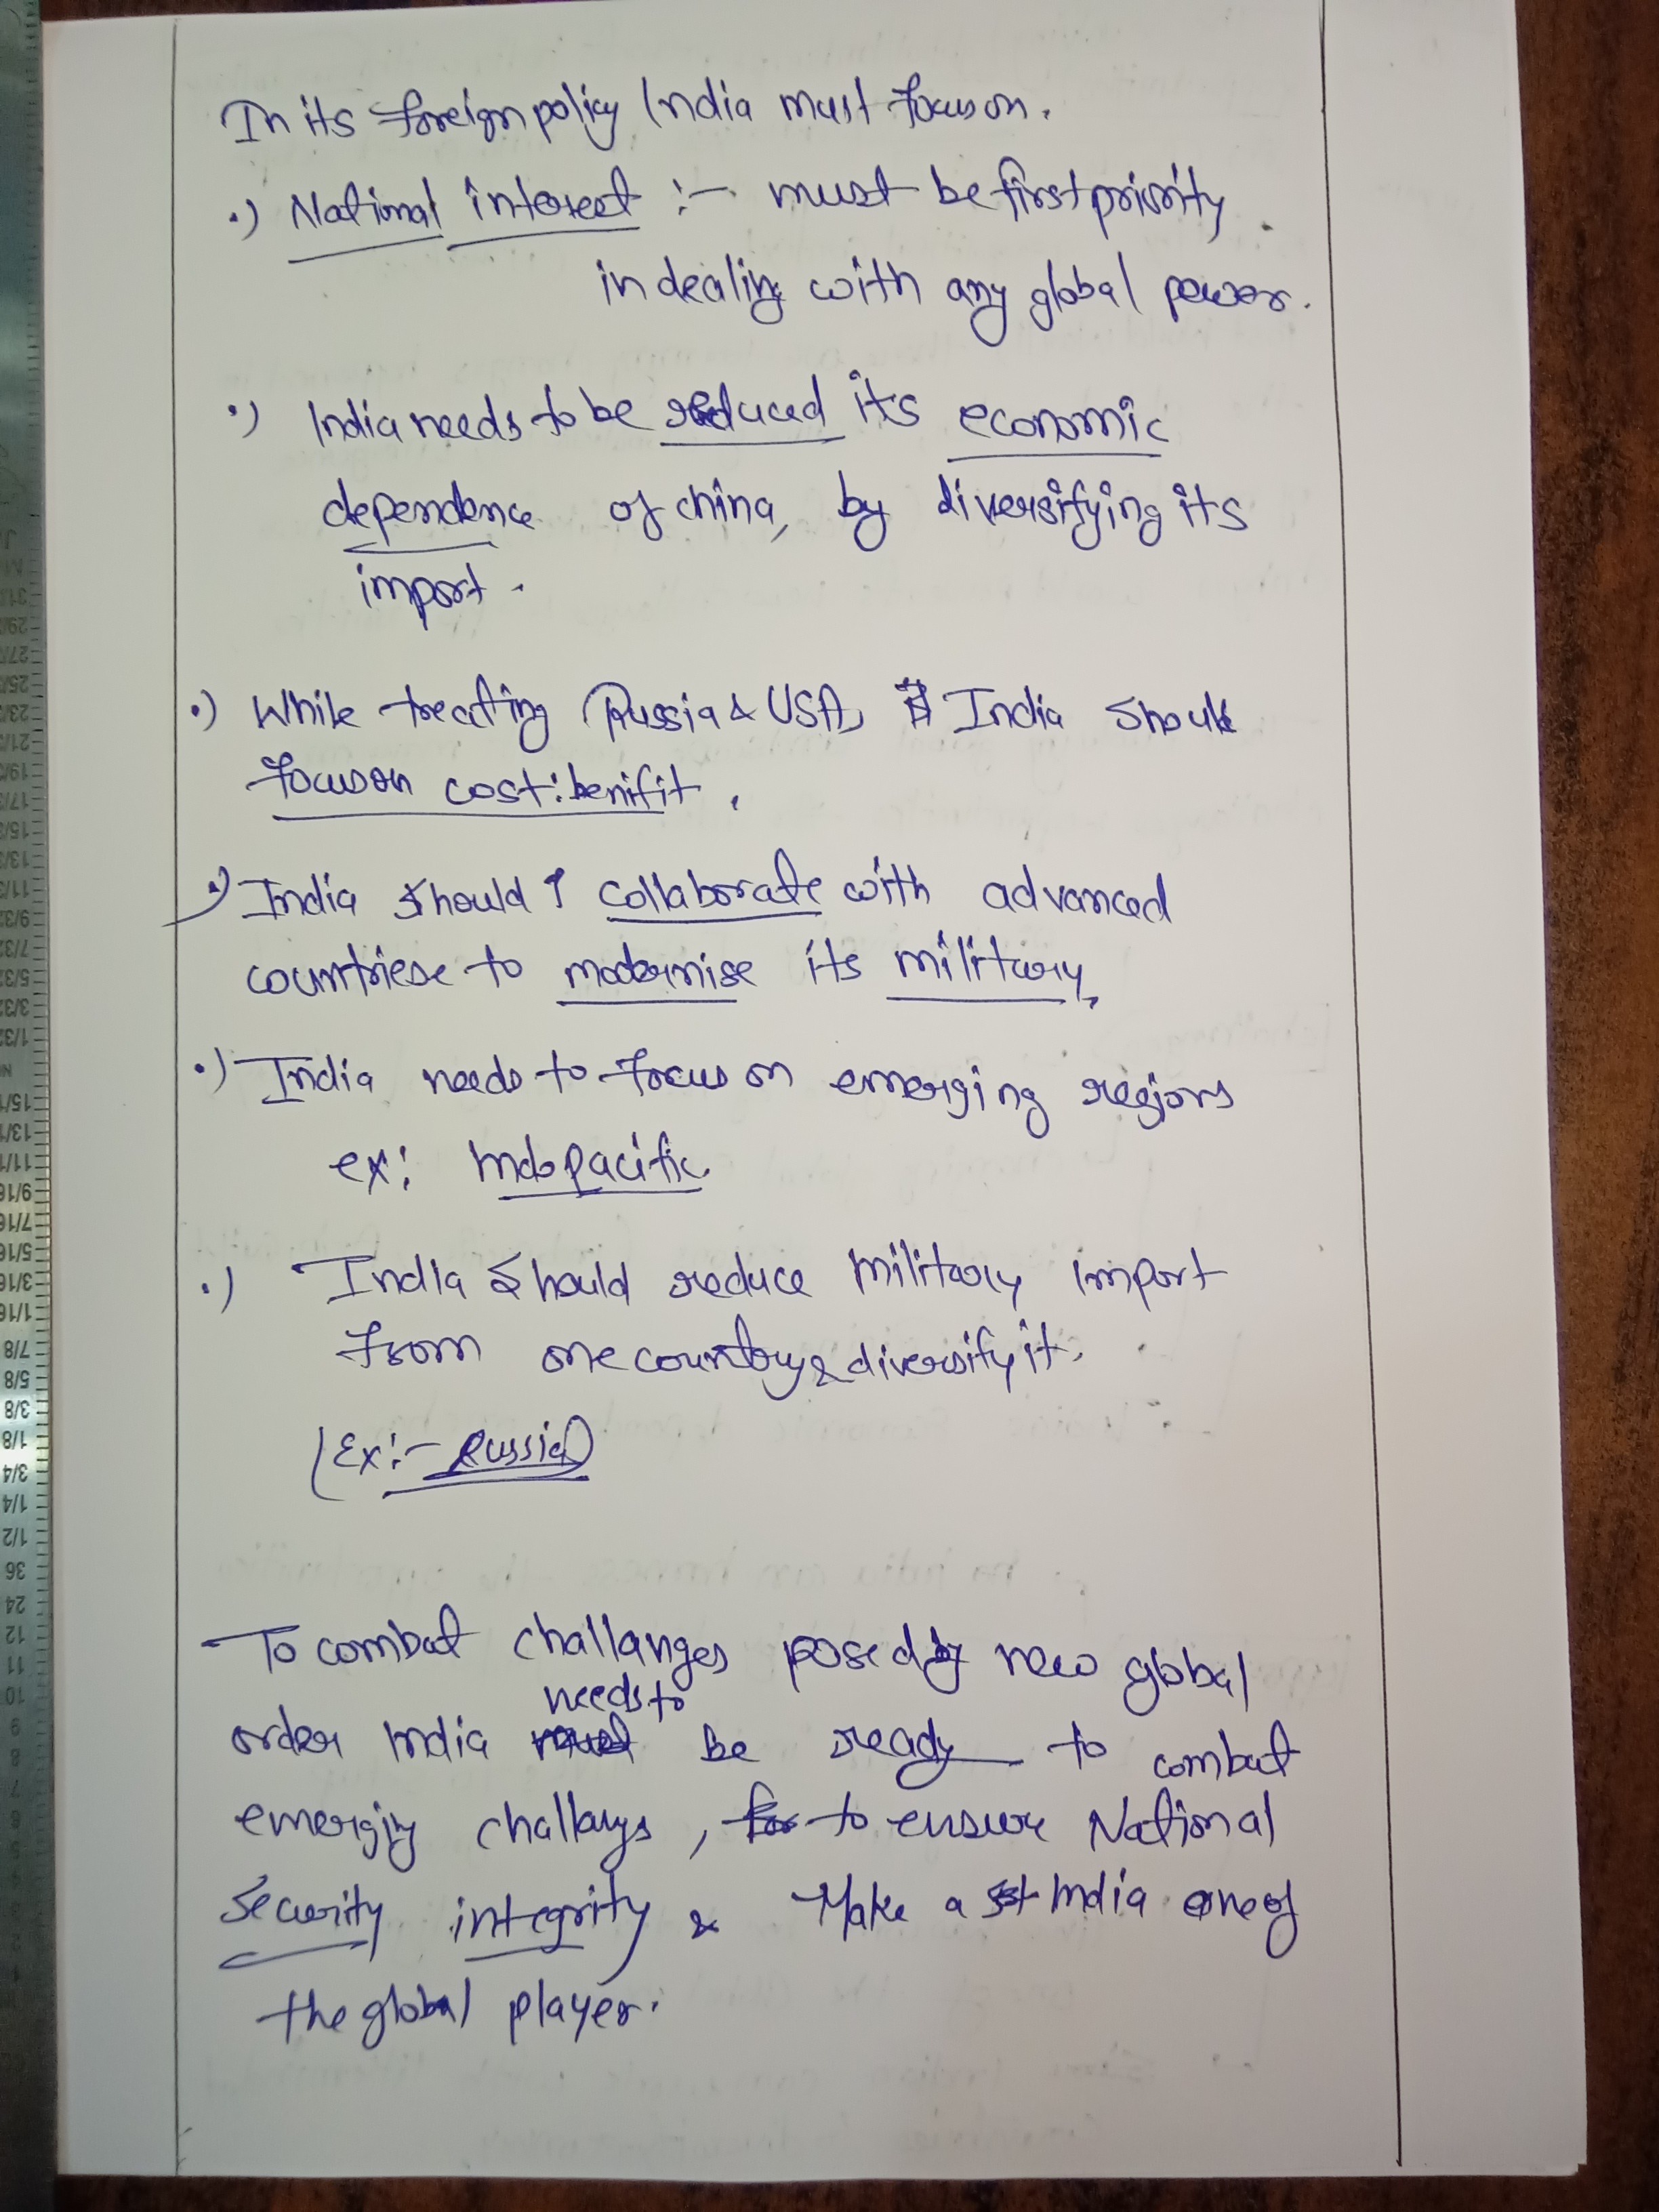 In its foreign policy India must focus on.
•) National interest :- must be first priority
in dealing with any global power.
•) India needs to be reduced its economic
dependence of china, by diversifying its
import.
•) While treating Russia & USA, India should
focus on cost:benifit.
•) India should collaborate with advanced
countriese to modernise its military,
•) India needs to focus on emerging regions
ex: Indopacific
•) India should reduce military import
from one country & diversify it.
(Ex:- Russia)
To combat challanges posed by new global
needs to
order India be ready to combat
emerging challangs, to ensure National
security integrity & Make a India one of
the global player.